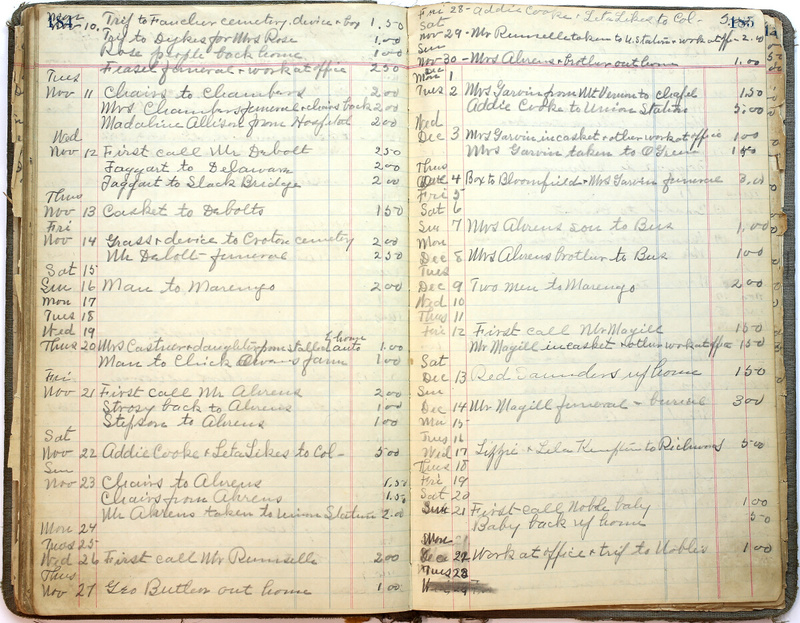 184
10, Trip to Faucher cemetery, device & box 1.50
Trip to Dykes for Mrs Rose 1.00
Rose people back home 1.00
Feasel funeral + work at office 2 50
Tues
Nov 11 Chairs to Chambers 2 00
Mrs Chambers funeral & chairs back 2 00
Madaline Allison from Hospital 2 00
Wed
Nov 12 First call Mr Debolt 2 50
Taggart to Delaware 2 00
Taggart to Slack Bridge 2 00
Thus
Nov 13 Casket to Debolts 1 50
Fri
Nov 14 Grass & device to Croton cemetry 2 00
Mr Debolt funeral 2 50
Sat 15
Sun 16 Man to Marengo 2 00
Mon 17
Tues 18
Wed 19
Thus 20 Mrs Castner & daughter from stalled auto 1.00
Man to Chick farm 1 00
Fri
Nov 21 First call Mr Ahrens 2 00
Strosy back to Ahrens 1 00
Stepson to Ahrens 1.00
Sat
Nov 22 Addie Cooke & Leta Likes to Col- 5 00
Sun
Nov 23 Chairs to Ahrens 1.50
Chairs from Ahrens 1.50
Mr Ahrens taken to Union Station 2.00
Mon 24
Tues 25
Wed 26 First call Mr Rumselle 2 00
Thus
Nov 27 Geo Butler out home 1 00
185
Fri 28- Addie Cooke & Leta Likes to Col-
Sat
Nov 29- Mr Rumselle taken to U. Station + work at office 2.00
Sun
Nov 30- Mrs Ahrens & brother out home 1.00
Mon 1
Tues 2 Mrs Garvin from Mt Vernon to chapel 1.50
Addie Cooke to Union Station 5.00
Wed
Dec 3 Mrs Garvin in casket + other work at office 1.00
Mrs Garvin taken to 1 50
Thus
4 Box to Bloomfield & Mrs Garvin funeral 3.00
Fri 5
Sat 6
Sun 7 Mrs Ahrens son to Bus 1.00
Mon
Dec 8 Mrs Ahrens brother to Bus 1 00
Tues
Dec 9 Two men to Marengo 2 00
Wed 10
Thus 11
Fri 12 First call Mr Magill 1 50
Mr Magill in casket + other work at office 1 50
Sat
Dec 13 Red Saunders up home 1 50
Sun
Dec 14 Mr Magill funeral - burial 3 00
Mon 15
Tues 16
Wed 17 & Lela to 5 00
Thus 18
Fri 19
Sat 20
Sun 21 First call Noble baby 1 00
Baby back up home 50
Mon
22 Work at office & trip to Nobles 1 00
Tues 23